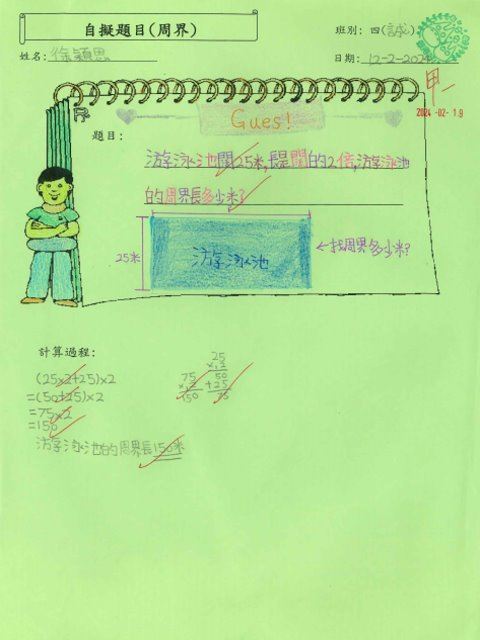 自擬題目(周界)
班別: 四(誠)
姓名: 徐穎思
日期: 12-2-2024
甲
2024 -02- 1.9
Gues!
題目:
游泳池闊25米,長是闊的2倍,游泳池
的周界長多少米?
25米
游泳池
←找周界多少米?
計算過程:
(25x2+25)x2
=(50+25)x2
=75x2
=150
游泳池的周界長150米
25
x 2
50
+25
75
75
x 2
150